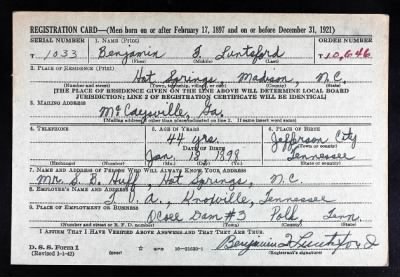 REGISTRATION CARD—(Men born on or after February 17, 1897 and on or before December 31, 1921)
SERIAL NUMBER 1. NAME (Print) ORDER NUMBER
T 1033 Benjamin F. Luntsford T10,646
(First) (Middle) (Last)
2. PLACE OF RESIDENCE (Print)
Hot Springs, Madison, N.C.
(Number and street) (Town, township, village, or city) (County) (State)
[THE PLACE OF RESIDENCE GIVEN ON THE LINE ABOVE WILL DETERMINE LOCAL BOARD
JURISDICTION; LINE 2 OF REGISTRATION CERTIFICATE WILL BE IDENTICAL]
3. MAILING ADDRESS
McCaysville, Ga.
[Mailing address if other than place indicated on line 2. If same insert word same]
4. TELEPHONE 5. AGE IN YEARS 6. PLACE OF BIRTH
44 yrs Jefferson City
DATE OF BIRTH (Town or county)
Jan. 18 1898 Tennessee
(Exchange) (Number) (Mo.) (Day) (Yr.) (State or country)
7. NAME AND ADDRESS OF PERSON WHO WILL ALWAYS KNOW YOUR ADDRESS
Mr. S. B. Huff, Hot Springs, N.C.
8. EMPLOYER'S NAME AND ADDRESS
T.V.A., Knoxville, Tennessee
9. PLACE OF EMPLOYMENT OR BUSINESS
Ocoee Dam #3 Polk, Tenn.
(Number and street or R. F. D. number) (Town) (County) (State)
I AFFIRM THAT I HAVE VERIFIED ABOVE ANSWERS AND THAT THEY ARE TRUE.
D. S. S. Form 1
(Revised 1-1-42) (over) 16—21630-1 Benjamin F Luntsford
(Registrant's signature)